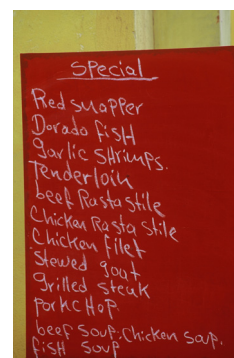 special
Red snapper
Dorado Fish
garlic SHrimps.
Tenderloin
beef Rasta stile
Chicken Rasta Stile
Chicken filet
Stewed gout
grilled steuk
porkcHop
beef soup. Chicken soup.
fish soup